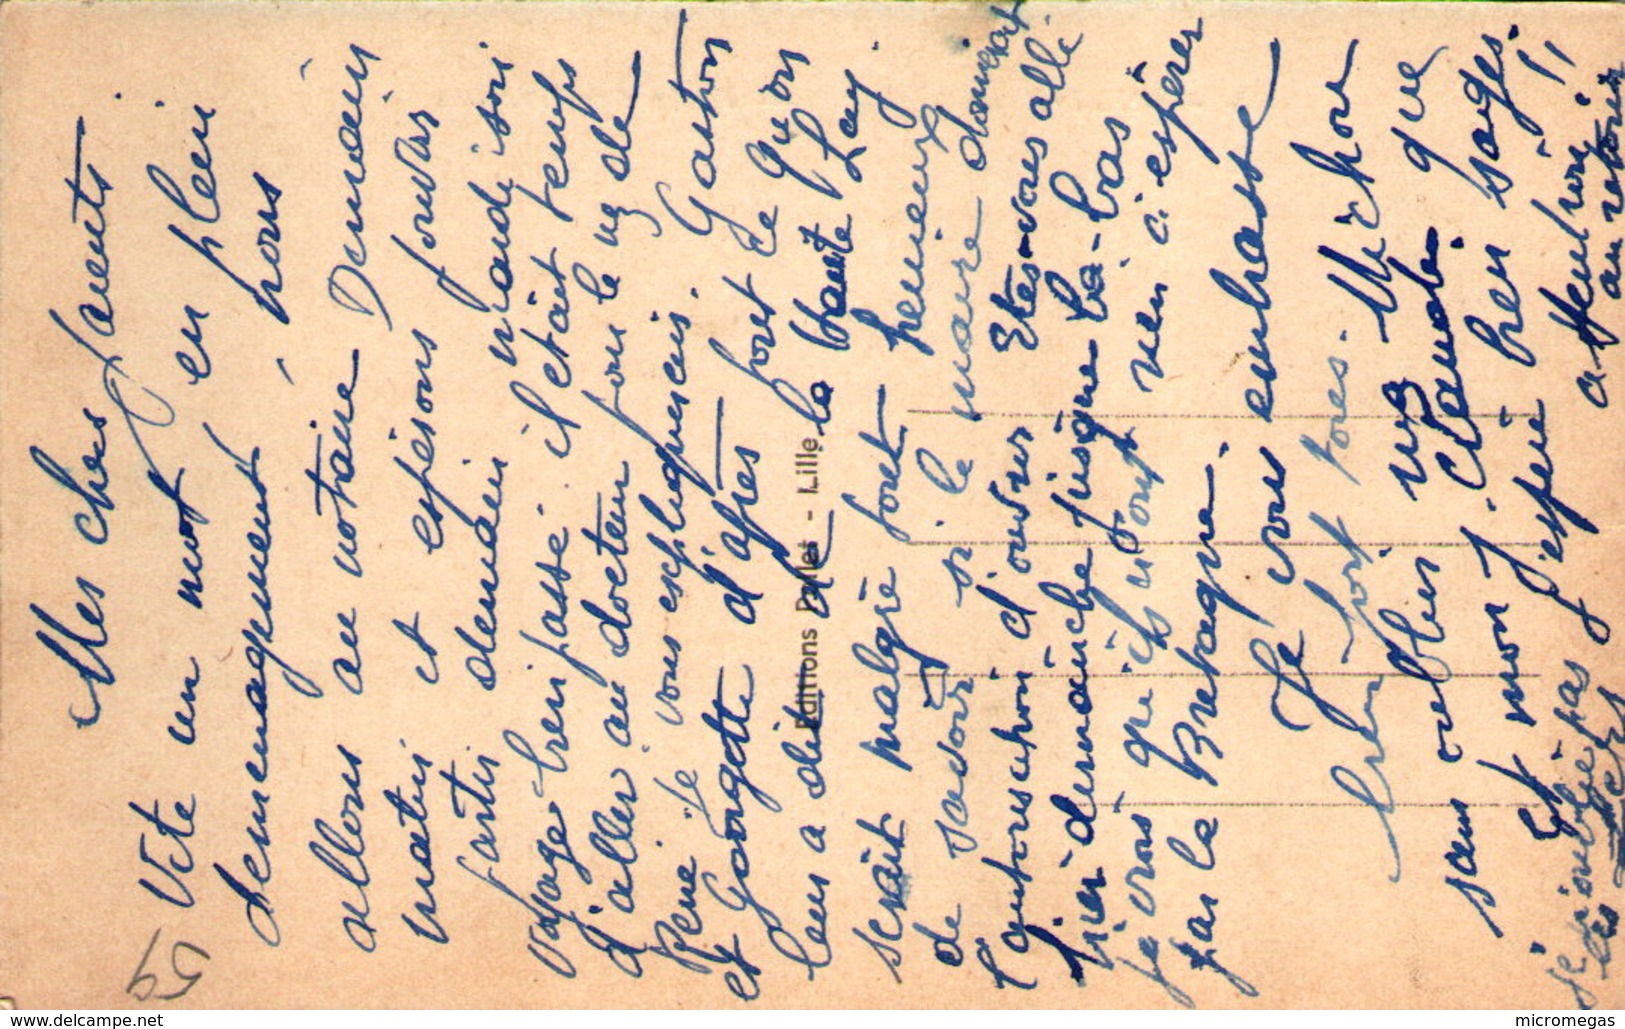 Mes chers Parents.
Vite un mot en plein
demenagement, nous
allons au notaire Demain
matin et espérons pouvoir
partir demain mardi soir
voyage bien passé. il etait temps
d'aller au docteur pour le nez de
René je vous expliquerais. Gaston
et Georgette d'apres tout ce qu'on
leur a dit de la haute
serait malgré tout heureux
de savoir si le maire donnerait
l'autorisation d'ouvrir Etes-vous allé
hier dimanche jusque là-bas
je crois qu'ils n'ont rien à espérer
par la Bretagne.
Je vous embrasse
bien fort tous. Michou
sans oublier ma que
et mon J. Claude
J'espère bien sages.
Je n'oublie pas attention!!
les au retour
59
Editions Pollet - Lille
www.delcampe.net
micromegas